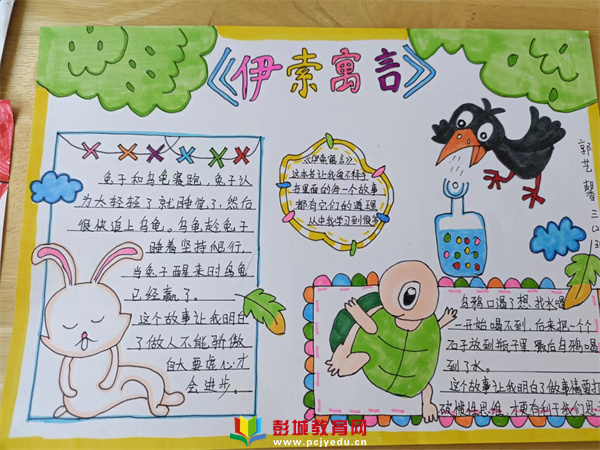 《伊索寓言》
兔子和乌龟赛跑，兔子认
为太轻轻了就睡觉了，然后
很快追上乌龟，乌龟趁兔子
睡着坚持爬行
当兔子醒来时乌龟
已经赢了。
这个故事让我明白
了做人不能骄傲
自大要虚心才
会进步。
《伊索寓言》
这本书让我爱不释手
书里面的每一个故事
都有它们的道理
从中我学习到很多
郭艺馨
三
乌鸦口渴了想找水喝
一开始喝不到，后来把一个
石子放到瓶子里 最后乌鸦喝
到了水。
这个故事让我明白了做事情要打
破惯性思维，才更有利于我们思
彭城教育网
www.pcjyedu.cn